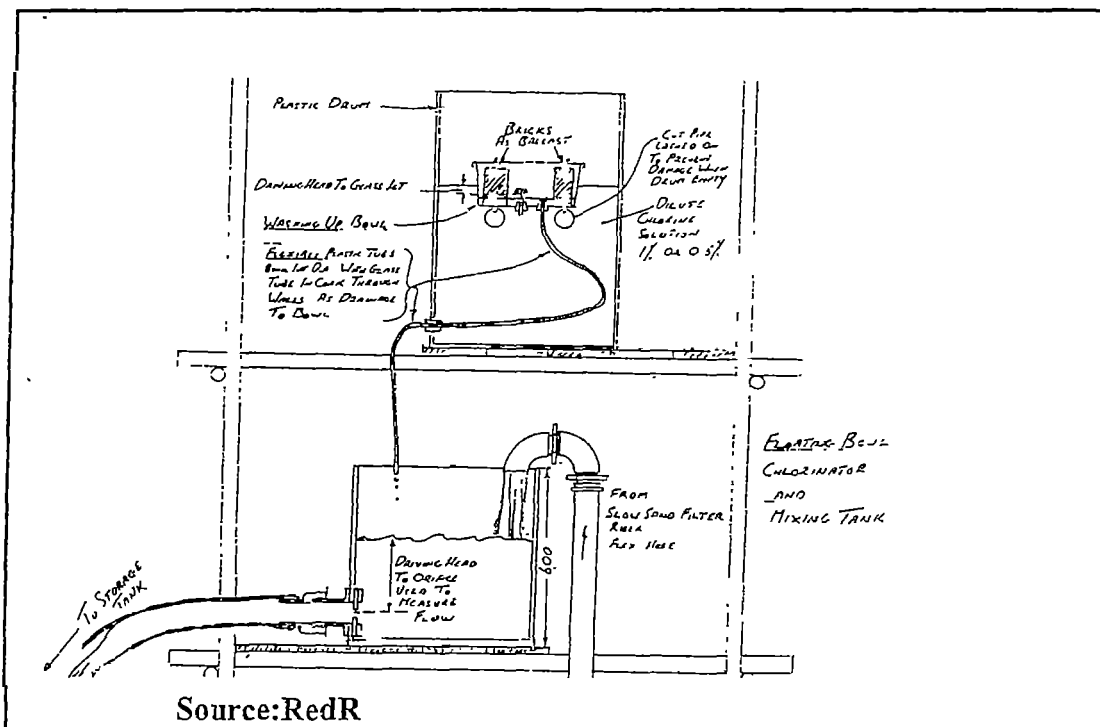 PLASTIC DRUM
BRICKS
AS BALLAST
CUT PIPE
LASHED ON
TO PREVENT
DAMAGE WHEN
DRUM EMPTY
DRIVING HEAD TO GLASS JET
WASHING UP BOWL
DILUTE
CHLORINE
SOLUTION
1% OR 0.5%
FLEXIBLE PLASTIC TUBE
WITH GLASS
TUBE IN CORK THROUGH
WALLS AS DRAINAGE
TO BOWL
FLOATING BOWL
CHLORINATOR
AND
MIXING TANK
FROM
SLOW SAND FILTER
FLEX HOSE
600
DRIVING HEAD
TO ORIFICE
USED TO
MEASURE
FLOW
TO STORAGE
TANK
Source:RedR